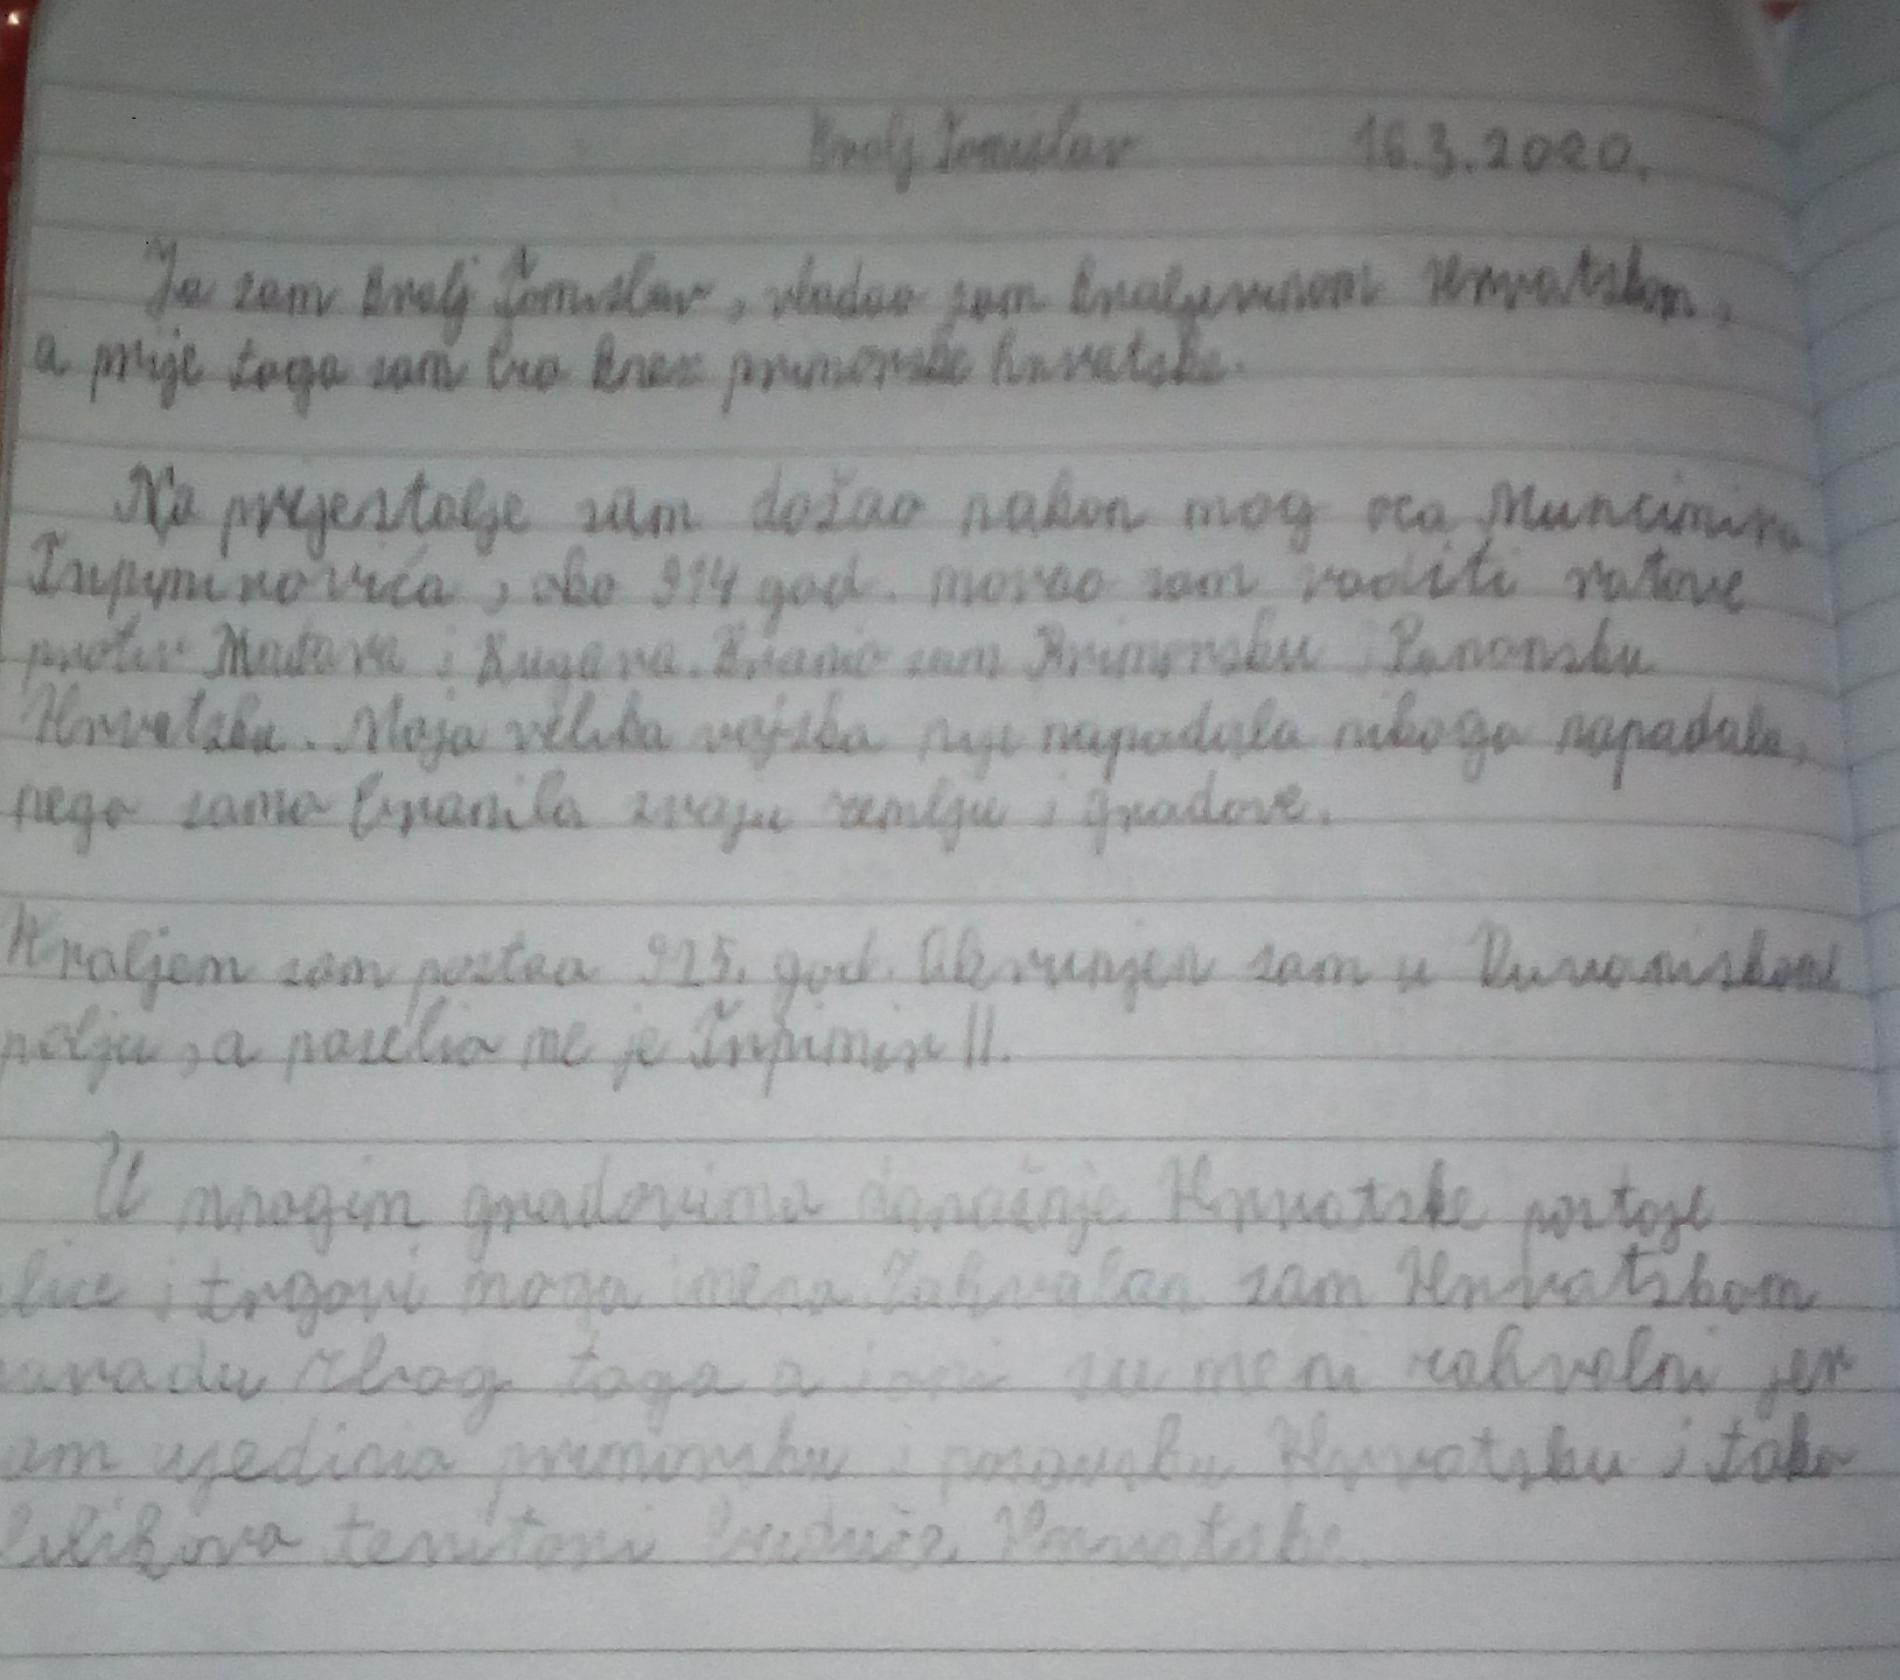 Kralj Tomislav 16.3.2020.
Ja sam kralj Tomislav, vladao sam kraljevinom Hrvatskom,
a prije toga sam bio knez primorske hrvatske.
Na prijestolje sam dožao nakon mog oca Muncimira
Trpimirovića, oko 914 god. morao sam voditi ratove
protiv Mađara i Bugara. Branio sam Primorsku i Panonsku
Hrvatsku. Moja velika vojska nije napadala nikoga napadala,
nego samo branila svoju zemlju i gradove.
Kraljem sam postao 925. god. Okrunjen sam u Duvanjskome
polju, a naselio me je Trpimir II.
U mnogim gradovima današnje Hrvatske postoje
lice i trgovi moga imena. Zahvalan sam Hrvatskom
narodu zbog toga a su meni zahvalni jer
am ujedinio primorsku i Hrvatsku i tako
teritori buduće Hrvatske.